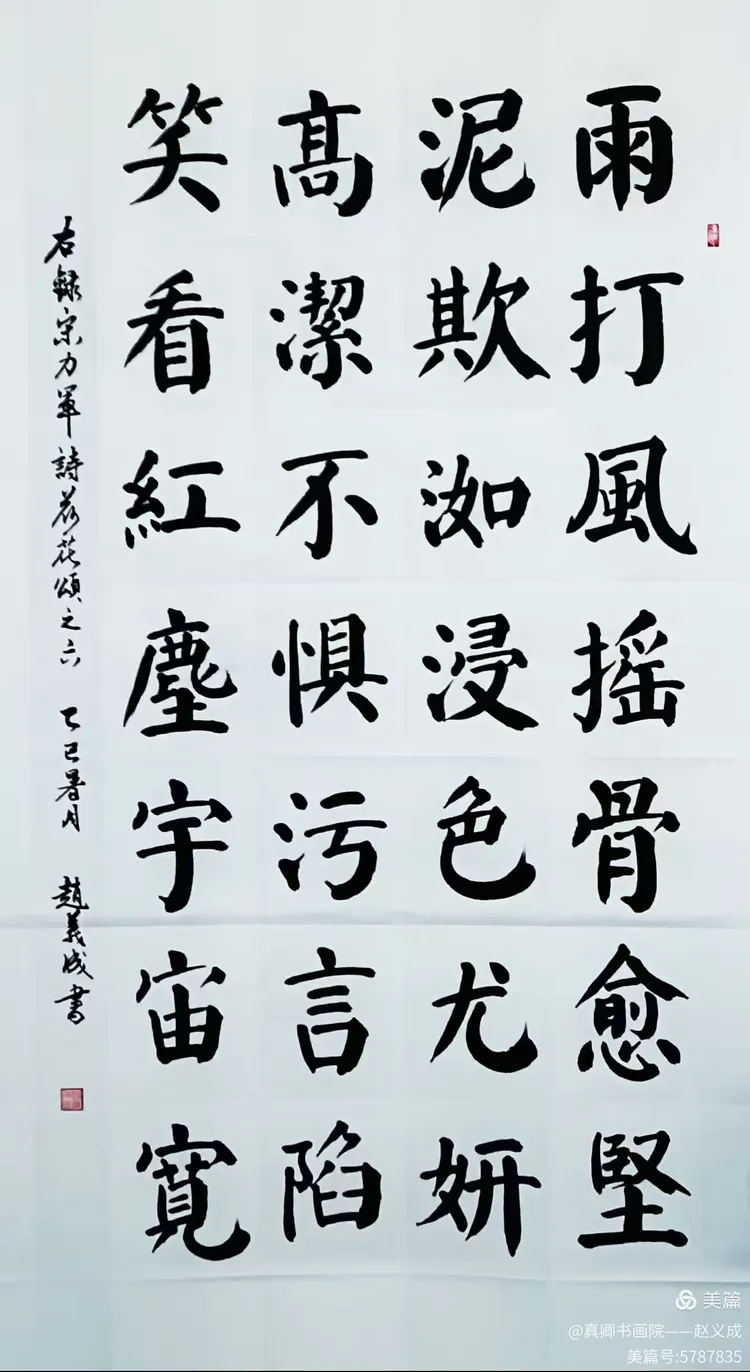 雨打風摇骨愈堅
泥欺洳浸色尤妍
高潔不惧污言陷
笑看紅塵宇宙寬
右録宋力軍詩荷花頌之六 乙巳暑月 趙義成書
美篇
@真卿书画院——赵义成
美篇号:5787835